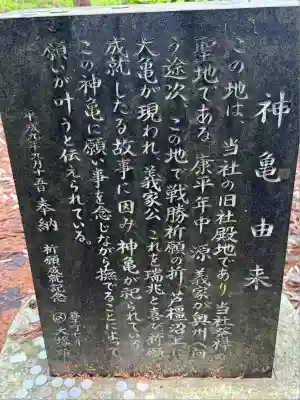 神亀由来
この地は、当社の旧社殿地であり、当社発祥の
聖地である。康平年中 源 義家が奥州へ向
う途次、この地で戦勝祈願の折、芦檀沼上に
大亀が現われ、義家公これを瑞兆と喜び祈願
成就したる故事に因み神亀が祀られている。
この神亀に願い事を念じながら撫でることによって
願いが叶うと伝えられている。
平成九年九月十一日 奉納 祈願成就記念